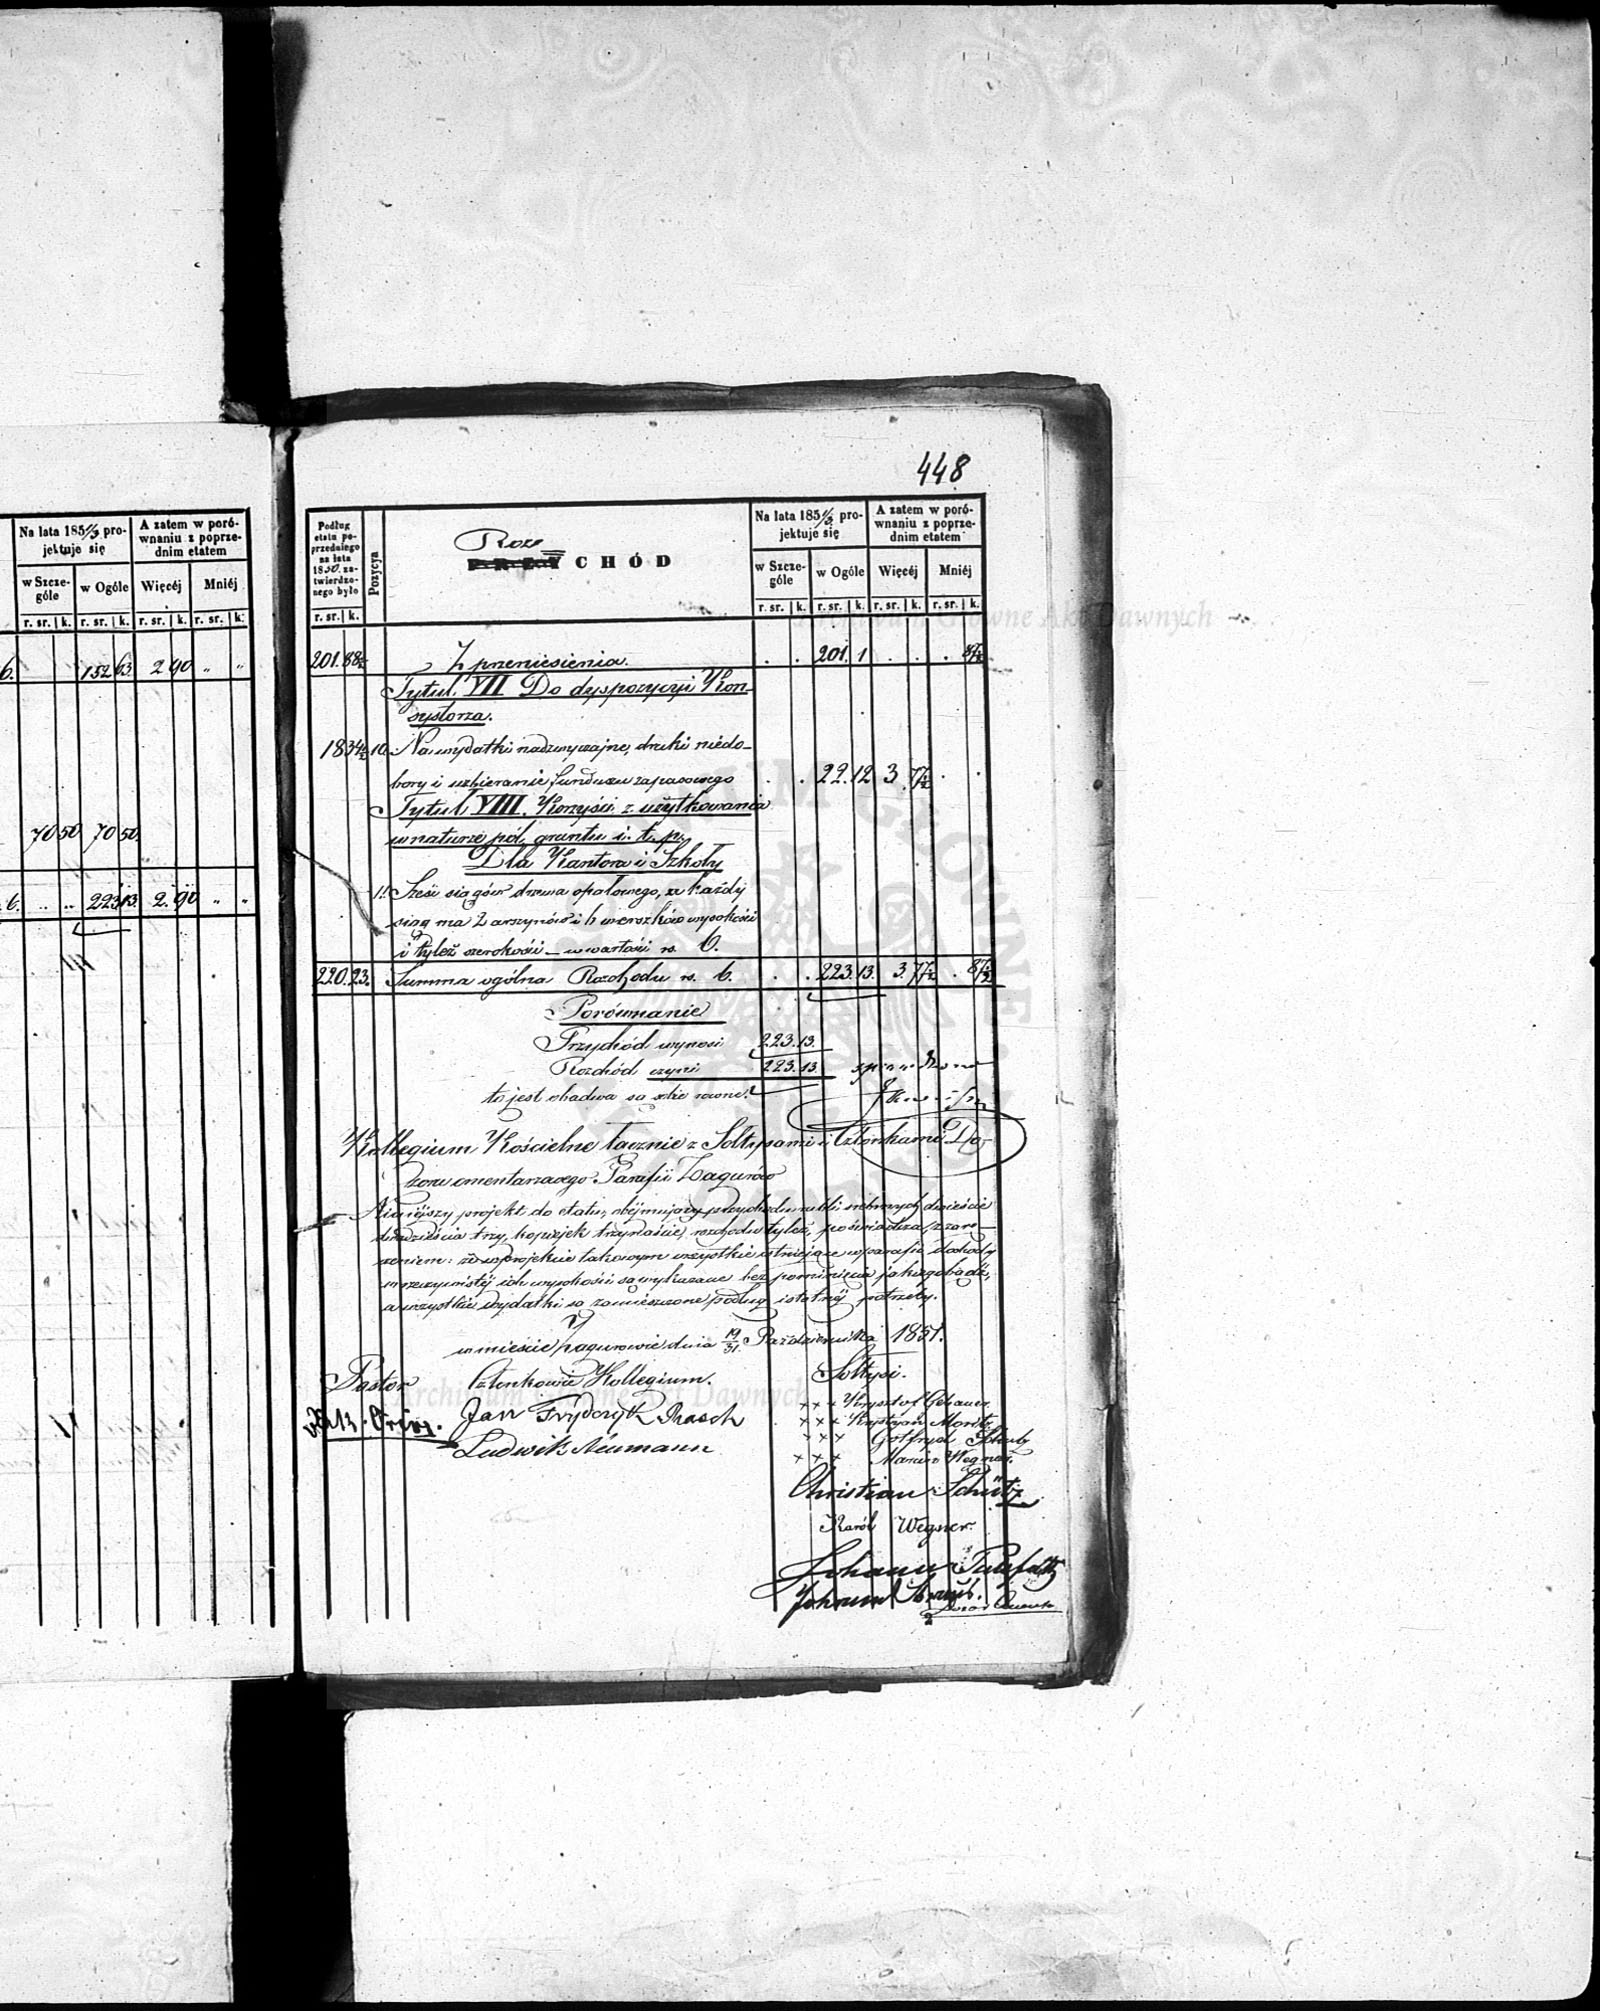 Na lata 185 1/3 pro-
jektuje się
A zatem w poró-
wnaniu z poprze-
dnim etatem
w Szcze-
góle
w Ogóle
Więcéj
Mniéj
r. sr. k. r. sr. k. r. sr. k. r. sr. k.
6. 152 63 2 90 " "
70 50 70 50
6. " " 223 13. 2. 90 " "
448
Podług
etatu po-
przedniego
na lata
1850. za-
twierdzo-
nego było
r. sr. k.
Pozycya
Roz
PRZYCHÓD
Na lata 185 1/3 pro-
jektuje się
A zatem w poró-
wnaniu z poprze-
dnim etatem
w Szcze-
góle
w Ogóle
Więcéj
Mniéj
r. sr. k. r. sr. k. r. sr. k. r. sr. k.
Archiwum Główne Akt Dawnych
201. 88½ Z przeniesienia. . . 201. 1 . . . 87½
Tytuł VII Do dyspozycyi Kon-
systorza.
18 34½ 10. Na wydatki nadzwyczajne, druki niedo-
bory i uzbieranie funduszu zapasowego . . 22. 12 3. 77½ . .
Tytuł VIII. Korzyści z użytkowania
w naturze pól, gruntu i. t. p.
Dla Kantora i Szkoły
11. Sześć sągów drzewa opałowego, a każdy
sąg ma 2 arszynów i 6 werszków wysokości
i tyleż szerokości – w wartości rs. 6.
220. 23. Summa ogólna Rozchodu rs. 6. . . 223. 13. 3. 77½ . 87½
Porównanie
Przychód wynosi 223. 13.
Rozchód czyni 223. 13.
to jest obadwa są sobie równe.
Kollegium Kościelne łącznie z Sołtysami i Członkami Do-
zoru cmentarzowego Parafii Zagurów
Niniejszy projekt do etatu, obejmujący przychodu rubli srebrnych dwieście
dwadzieścia trzy, kopiejek trzynaście, rozchodu tyleż, poświadcza, z zarę-
czeniem: że w projekcie takowym wszystkie istniejące w parafii dochody
w rzeczywistéj ich wysokości są wykazane bez pominięcia jakiegobądź,
a wszystkie wydatki są zamieszczone podług istotnéj potrzeby.
w mieście Zagurowie dnia 19/31. Października 1851.
Pastor
Członkowie Kollegium.
Sołtysi.
Archiwum Główne Akt Dawnych
Jan Frydrych Rasch
Ludwik Neumann
+++ Krysztof
+++ Krystyan Moritz
+++ Gotfryd
+++ Marcin Wegner.
Christian Schütz
Karól Wegner.
Johann
Johann